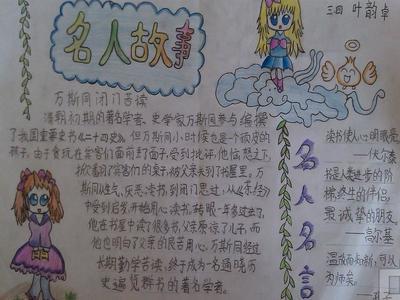 三四 叶韵卓
名人故事
万斯同闭门苦读
清朝初期的著名学者、史学家万斯同参与编撰
了我国重要史书《二十四史》。但万斯同小时候也是个顽皮的
孩子。由于贪玩在宾客们面前丢了面子，受到批评，他恼怒之下
掀翻了宾客们的桌子，被父亲关到了书屋里。万
斯同从生气、厌恶读书，到闭门思过，从《茶经》
中受到启发，开始用心读书。转眼一年多过去了，
他在书屋中读了很多书，父亲原谅了儿子，而
他也明白了父亲的良苦用心。万斯同经过
长期勤学苦读，终于成为一名通晓历
史遍览群书的著名学者。
名人名言
读书使人心明眼亮
——伏尔泰
书是人类进步的阶
梯，终生的伴侣，
最诚挚的朋友
——高尔基
温故而知新，可以
为师矣。